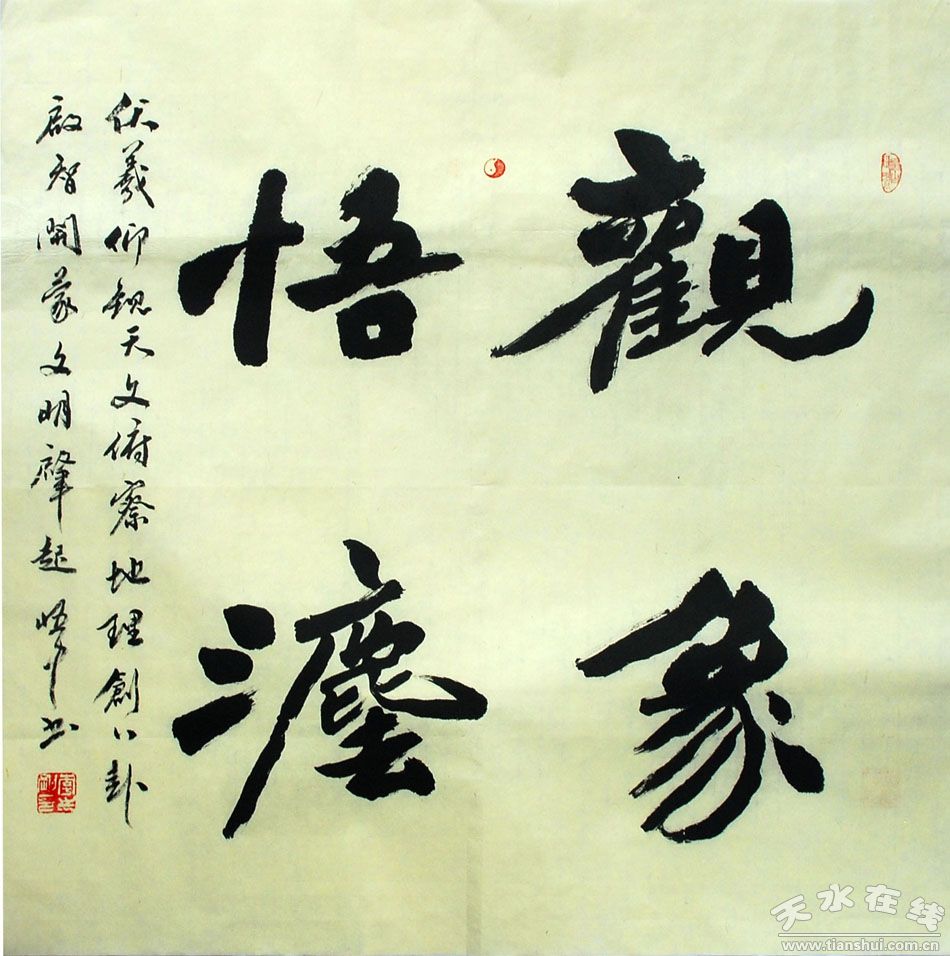 觀象
悟灋
伏羲仰觀天文俯察地理創八卦
啟智開蒙文明肇起 书
天水在线
www.tianshui.com.cn